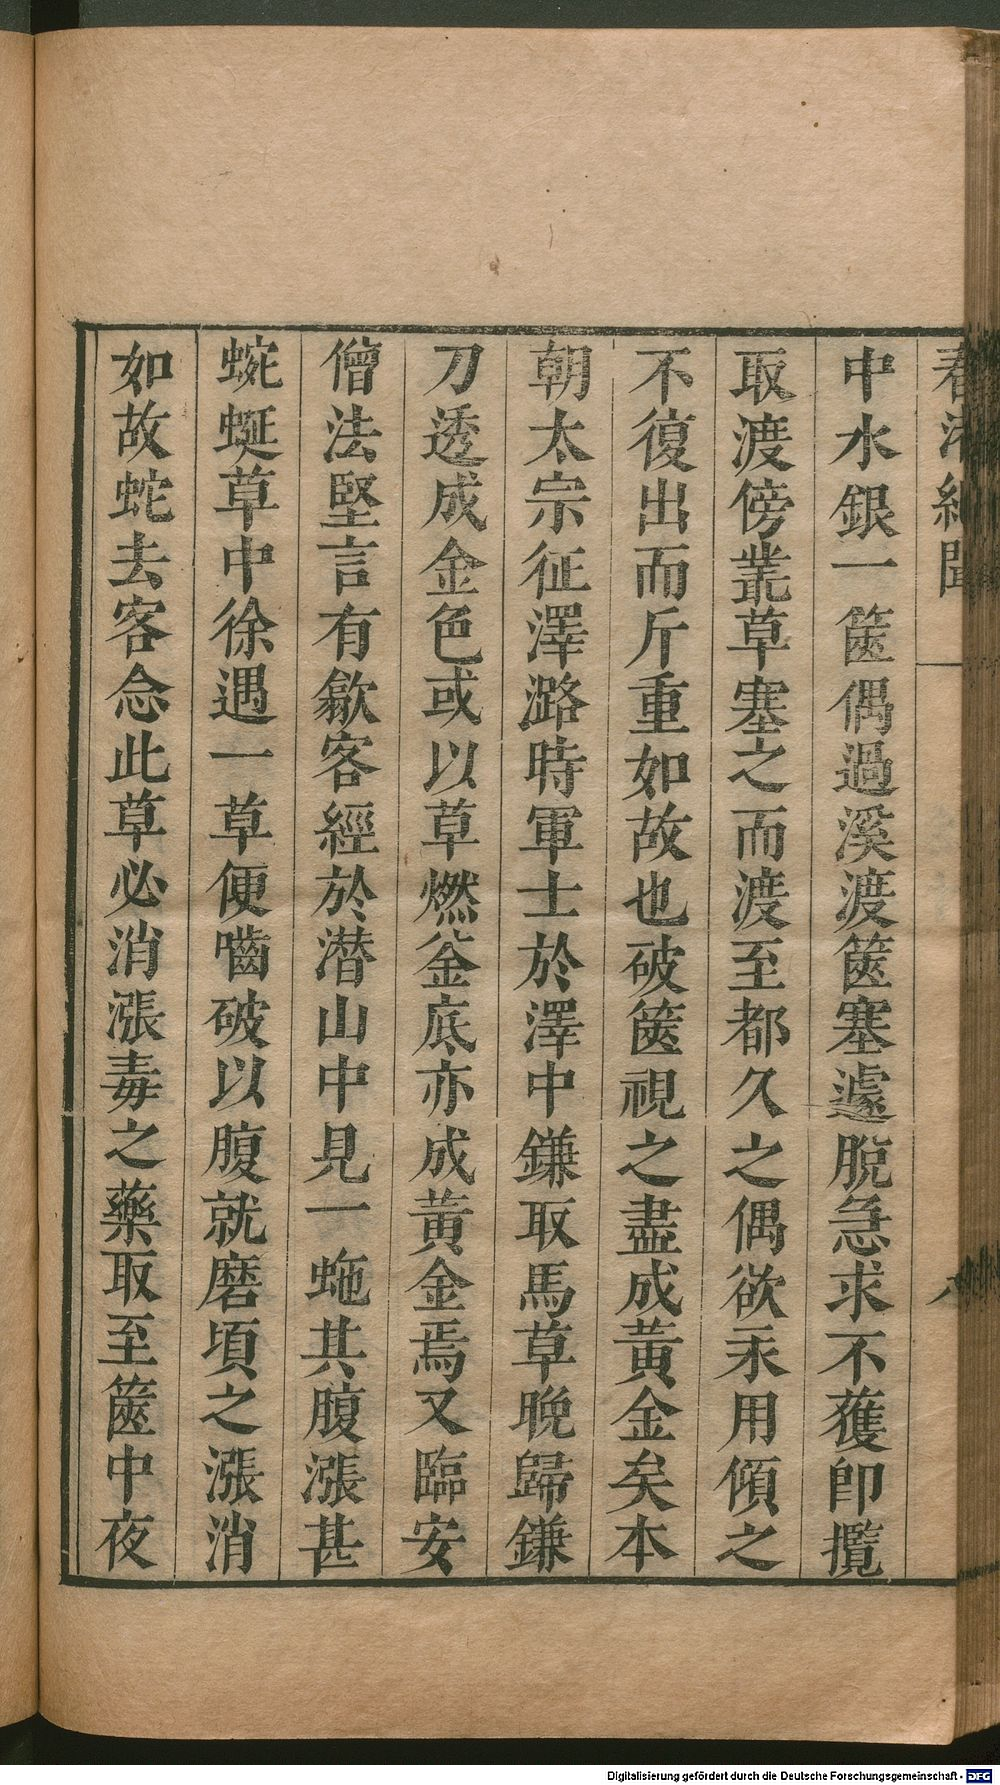 中水銀一篋偶過溪渡篋塞遽脫急求不獲即攬
取渡傍叢草塞之而渡至都久之偶欲汞用傾之
不復出而斤重如故也破篋視之盡成黃金矣本
朝太宗征澤潞時軍士於澤中鎌取馬草晚歸鎌
刀透成金色或以草燃釜底亦成黃金焉又臨安
僧法堅言有歙客經於潛山中見一虵共腹漲甚
蜿蜒草中徐遇一草便嚙破以腹就磨頃之漲消
如故蛇去客念此草必消漲毒之藥取至篋中夜
Digitalisierung gefördert durch die Deutsche Forschungsgemeinschaft - DFG